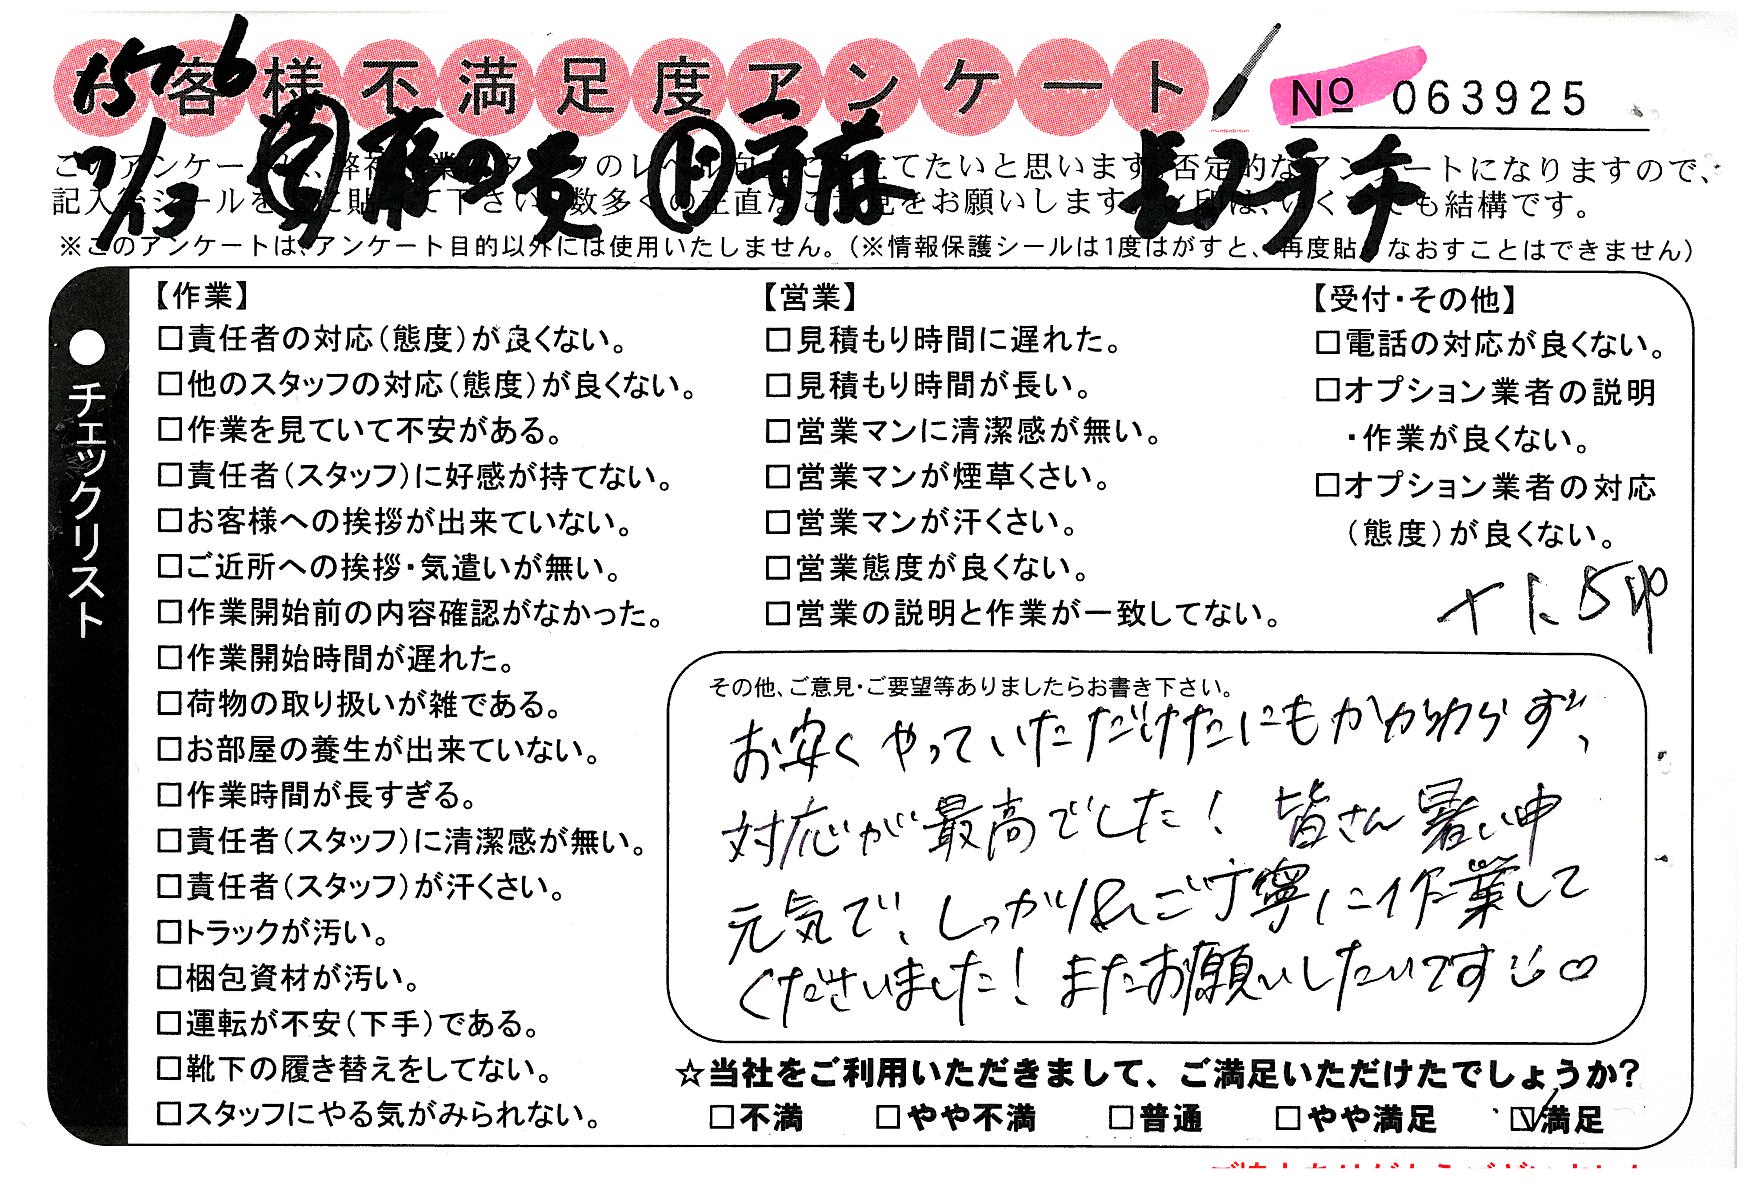 お客様不満足度アンケート
No 063925
1576
7/13
このアンケートは、弊社作業スタッフのレベル向上に役立てたいと思います。否定的なアンケートになりますので、
記入後シールを上に貼って下さい。数多くの正直なご意見をお願いします。レ印は、いくつでも結構です。
※このアンケートは、アンケート目的以外には使用いたしません。(※情報保護シールは1度はがすと、再度貼りなおすことはできません)
●チェックリスト
【作業】
□責任者の対応(態度)が良くない。
□他のスタッフの対応(態度)が良くない。
□作業を見ていて不安がある。
□責任者(スタッフ)に好感が持てない。
□お客様への挨拶が出来ていない。
□ご近所への挨拶・気遣いが無い。
□作業開始前の内容確認がなかった。
□作業開始時間が遅れた。
□荷物の取り扱いが雑である。
□お部屋の養生が出来ていない。
□作業時間が長すぎる。
□責任者(スタッフ)に清潔感が無い。
□責任者(スタッフ)が汗くさい。
□トラックが汚い。
□梱包資材が汚い。
□運転が不安(下手)である。
□靴下の履き替えをしてない。
□スタッフにやる気がみられない。
【営業】
□見積もり時間に遅れた。
□見積もり時間が長い。
□営業マンに清潔感が無い。
□営業マンが煙草くさい。
□営業マンが汗くさい。
□営業態度が良くない。
□営業の説明と作業が一致してない。
【受付・その他】
□電話の対応が良くない。
□オプション業者の説明
・作業が良くない。
□オプション業者の対応
(態度)が良くない。
その他、ご意見・ご要望等ありましたらお書き下さい。
お安くやっていただけたにもかかわらず、
対応が最高でした! 皆さん暑い中
元気で、しっかり&ご丁寧に作業して
くださいました! またお願いしたいです♡
☆当社をご利用いただきまして、ご満足いただけたでしょうか?
□不満 □やや不満 □普通 □やや満足 ☑満足